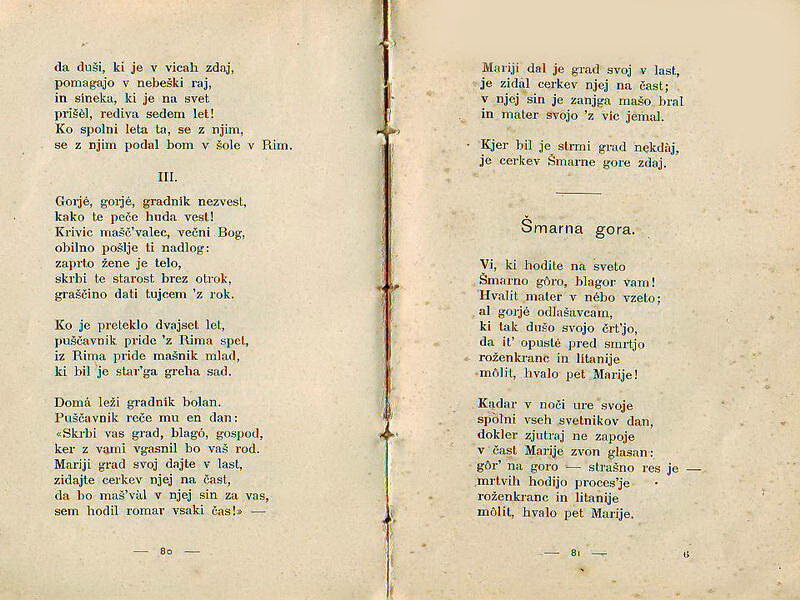 da duši, ki je v vicah zdaj,
pomagajo v nebeški raj,
in sineka, ki je na svet
prišèl, rediva sedem let!
Ko spolni leta ta, se z njim,
se z njim podal bom v šole v Rim.
III.
Gorjé, gorjé, gradnik nezvest,
kako te peče huda vest!
Krivic mašč’valec, večni Bog,
obilno pošlje ti nadlog:
zaprto žene je telo,
skrbi te starost brez otrok,
graščino dati tujcem ’z rok.
Ko je preteklo dvajset let,
puščavnik pride ’z Rima spet,
iz Rima pride mašnik mlad,
ki bil je star’ga greha sad.
Domá leži gradnik bolan.
Puščavnik reče mu en dan:
«Skrbi vas grad, blagó, gospod,
ker z vami vgasnil bo vaš rod.
Mariji grad svoj dajte v last,
zidajte cerkev njej na čast,
da bo maš’vàl v njej sin za vas,
sem hodil romar vsaki čas!» —
— 80 —
Mariji dal je grad svoj v last,
je zidal cerkev njej na čast;
v njej sin je zanjga mašo bral
in mater svojo ’z vic jemal.
Kjer bil je strmi grad nekdàj,
je cerkev Šmarne gore zdaj.
Šmarna gora.
Vi, ki hodite na sveto
Šmarno gôro, blagor vam!
Hvalit mater v nébo vzeto;
al gorjé odlašavcam,
ki tak dušo svojo črt’jo,
da it’ opusté pred smrtjo
roženkranc in litanije
môlit, hvalo pet Marije!
Kadar v noči ure svoje
spolni vseh svetnikov dan,
dokler zjutraj ne zapoje
v čast Marije zvon glasan:
gôr’ na goro — strašno res je —
mrtvih hodijo proces’je
roženkranc in litanije
môlit, hvalo pet Marije.
— 81 —
6